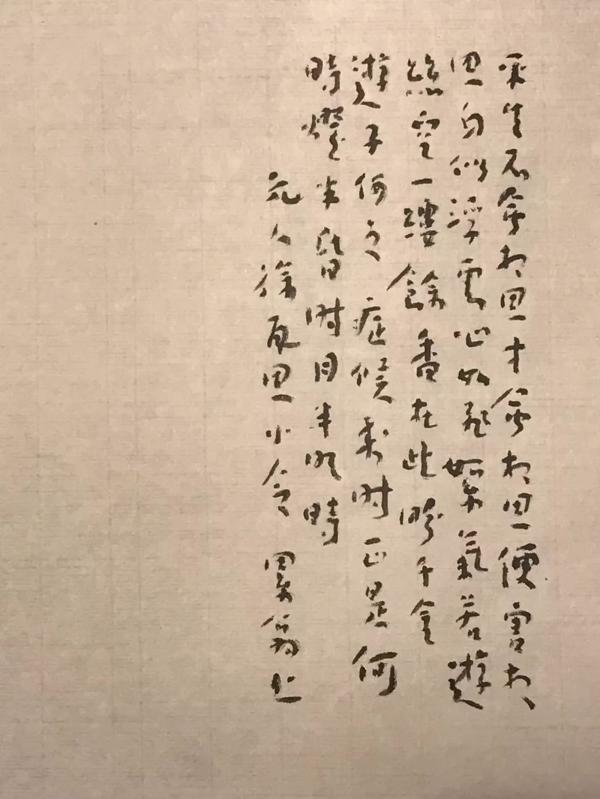 平生不會相思才會相思便害相
思身似浮雲心如飛絮氣若遊
絲空一縷餘香在此盼千金
遊子何之症候來时正是何
時燈半昏时月半明時
元人徐再思小令